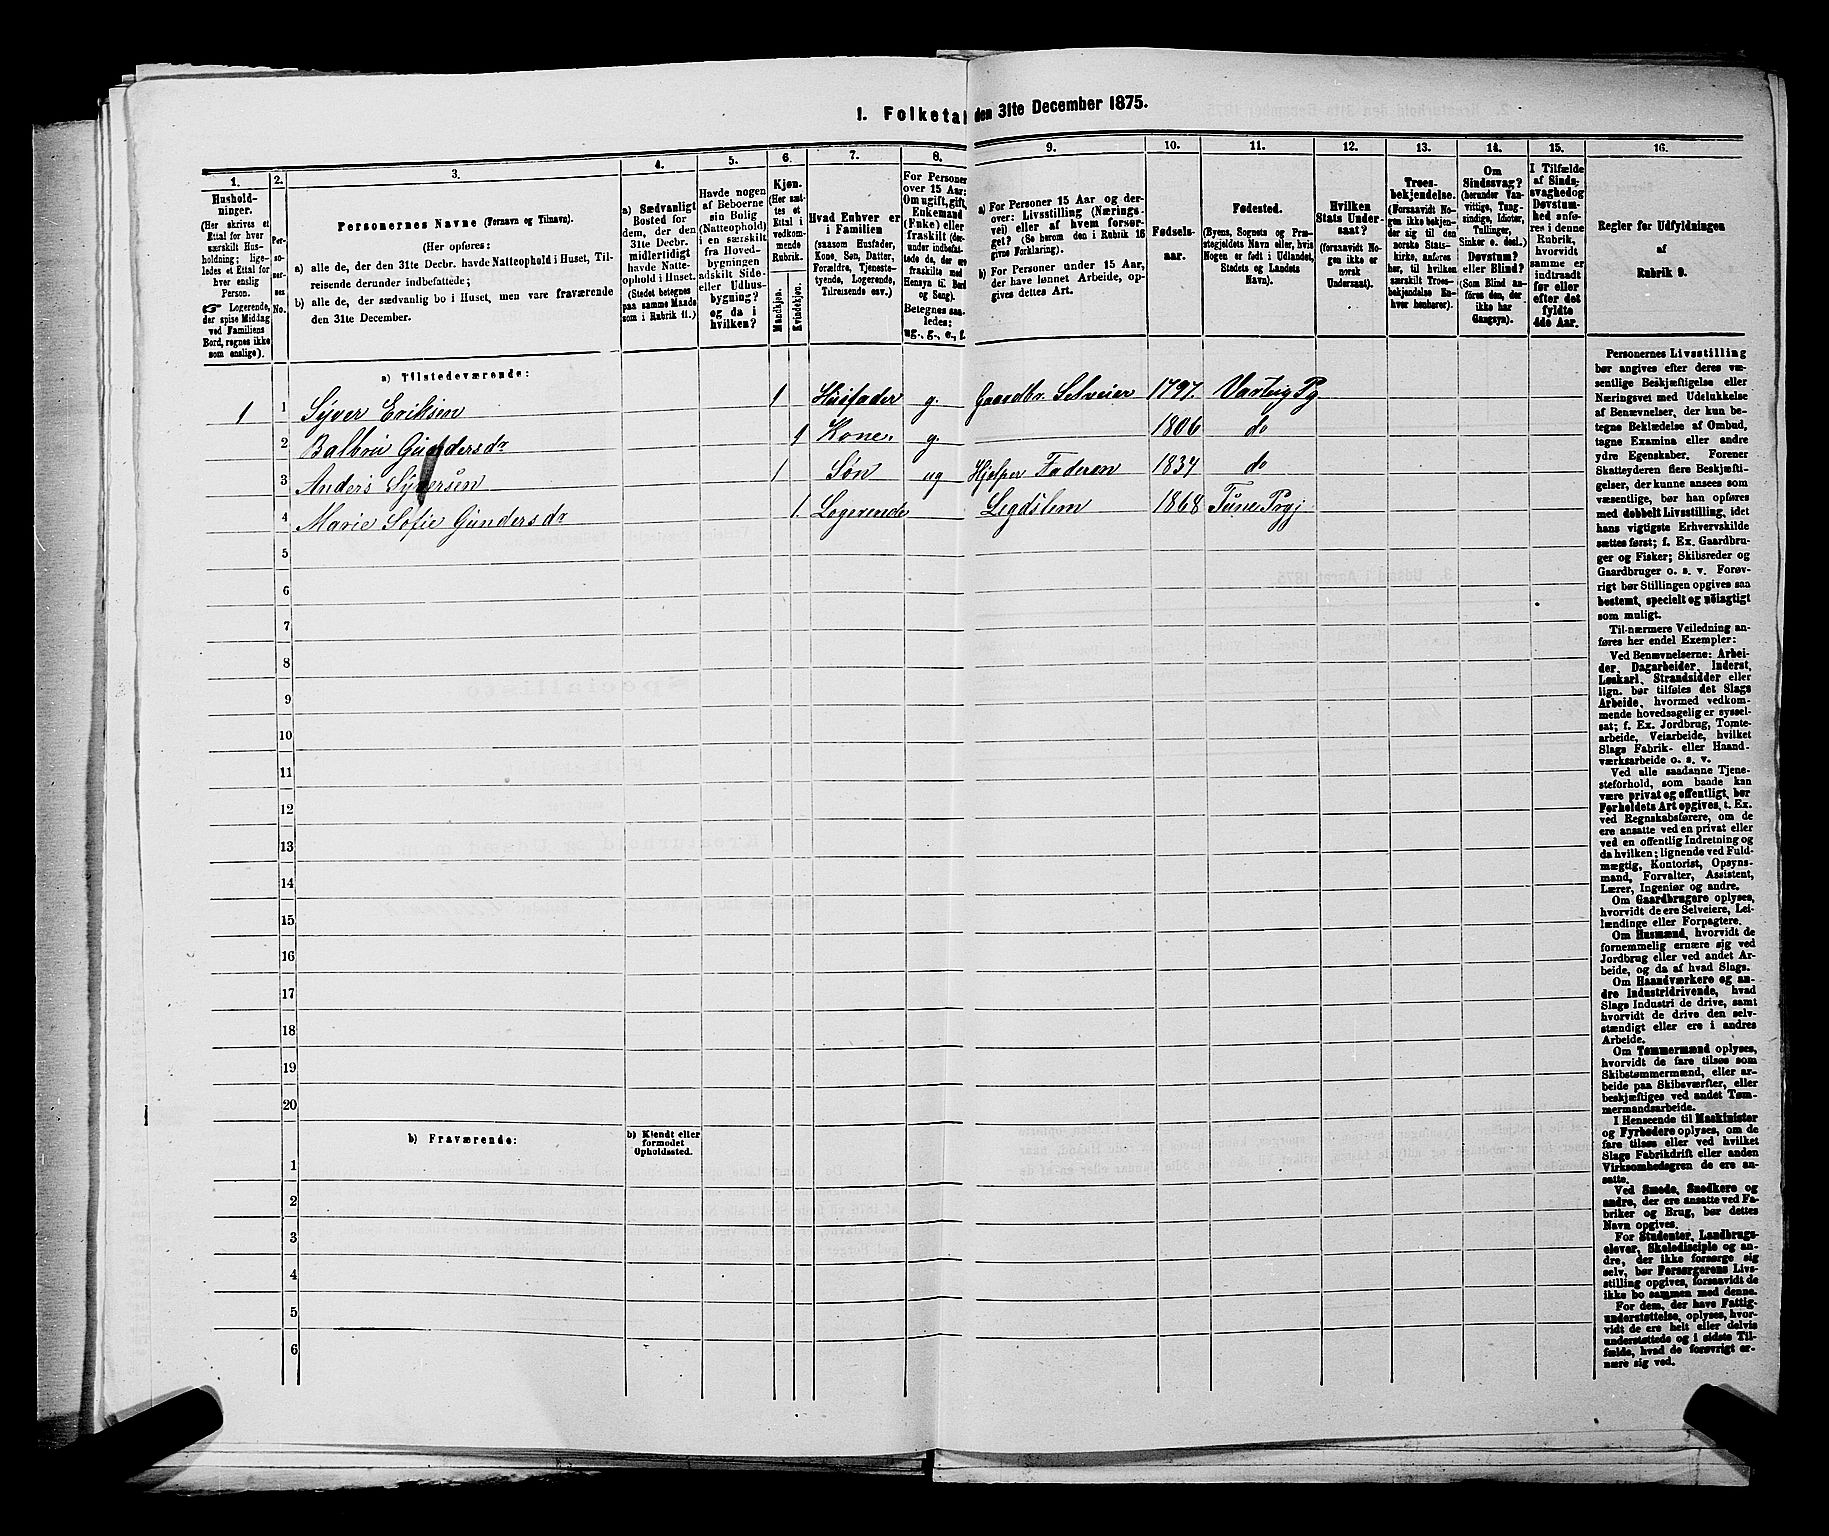 1. Folketal den 31te December 1875.
1.
Hushold-
ninger.
(Her skrives et
Ettal for hver
særskilt Hus-
holdning; lige-
ledes et Ettal for
hver enslig
Person.
Logerende,
der spise Middag
ved Familiens
Bord, regnes ikke
som enslige).
2.
Per-
so-
ner-
nes
No.
3.
Personernes Navne (Fornavn og Tilnavn).
(Her opføres:
a) alle de, der den 31te Decbr. havde Natteophold i Huset, Til-
reisende derunder indbefattede;
b) alle de, der sædvanlig bo i Huset, men vare fraværende
den 31te December.
4.
a) Sædvanligt
Bosted for
dem, der den
31te Decbr.
midlertidigt
havde Natte-
ophold i Huset.
(Stedet betegnes
paa samme Maade
som i Rubrik 11.)
5.
Havde nogen
af Beboerne
sin Bolig
(Natteophold)
i en særskilt
fra Hoved-
bygningen
adskilt Side-
eller Udhus-
bygning?
og da i
hvilken?
6.
Kjøn.
(Her sæt-
tes et
Ettal i
vedkom-
mende
Rubrik.
Mandkjøn.
Kvindekjøn.
7.
Hvad Enhver er
i Familien
(saasom Husfader,
Kone, Søn, Datter,
Forældre, Tjeneste-
tyende, Logerende,
Tilreisende osv.)
8.
For Personer
over 15 Aar:
Om ugift, gift,
Enkemand
(Enke) eller
fraskilt (der-
under indbefat-
tede de, der ere
fraskilte med
Hensyn til Bord
og Seng).
Betegnes saa-
ledes:
ug., g., e., f.
9.
a) For Personer 15 Aar og der-
over: Livsstilling (Nærings-
vei) eller af hvem forsør-
get? (Se herom den i Rubrik 16
givne Forklaring).
b) For Personer under 15 Aar,
der have lønnet Arbeide, op-
gives dettes Art.
10.
Fødsels-
aar.
11.
Fødested.
(Byens, Sognets og Præ-
stegjeldets Navn eller, hvis
Nogen er født i Udlandet,
Stedets og Landets
Navn).
12.
Hvilken
Stats Under-
saat?
(forsaavidt No-
gen ikke er
norsk
Undersaat).
13.
Troes-
bekjendelse.
(Forsaavidt No-
gen ikke bekjen-
der sig til den
norske Stats-
kirke, anføres
her, til hvilken
særskilt Troes-
bekjendelse En-
hver henhører).
14.
Om
Sindssvag?
(herunder Van-
vittige, Tung-
sindige, Idioter,
Tullinger,
Sinker o. desl.)
Døvstum?
eller Blind?
(Som Blind an-
føres den, der
ikke har
Gangsyn).
15.
I Tilfælde
af Sinds-
svaghed og
Døvstum-
hed anfø-
res i denne
Rubrik,
hvorvidt
samme er
indtraadt
før eller
efter det
fyldte
4de Aar.
16.
Regler for Udfyldningen
af
Rubrik 9.
a) Tilstedeværende:
1 1 Syver Eriksen 1 Husfader g. Gaardbr. Selveier 1797. Varteig Pg
2 Gundersdr 1 Kone. g. 1806 do
3 Anders Syversen 1 Søn ug Hjælper Faderen 1837 do
4 Marie Sofie Gundersdr 1. Logerende Legdslem 1868 Tune Prgj
5
6
7
8
9
10
11
12
13
14
15
16
17
18
19
20
b) Fraværende:
b) Kjendt eller
formodet
Opholdssted.
1
2
3
4
5
6
Personernes Livsstilling
bør angives efter deres væ-
sentlige Beskjæftigelse eller
Næringsvei med Udelukkelse
af Benævnelser, der kun be-
tegne Beklædelse af Ombud,
tagne Examina eller andre
ydre Egenskaber. Forener
Skatteyderen flere Beskjæfti-
gelser, der kunne ansees som
væsentlige, bør han opføres
med dobbelt Livsstilling, idet
hans vigtigste Erhvervskilde
sættes først; f. Ex. Gaardbru-
ger og Fisker; Skibsreder og
Gaardbruger o. s. v. Forøv-
rigt bør Stillingen opgives saa
bestemt, specielt og nøiagtigt
som muligt.
Til nærmere Veiledning an-
føres her endel Exempler:
Ved Benævnelserne: Arbei-
der, Dagarbeider, Inderst,
Løskarl, Strandsidder eller
lign. bør tilføies det Slags
Arbeide, hvormed vedkom-
mende hovedsagelig er syssel-
sat; f. Ex. Jordbrug, Tomte-
arbeide, Veiarbeide, hvilket
Slags Fabrik- eller Haand-
værksarbeide o. s. v.
Ved alle saadanne Tjene-
steforhold, som baade kan
være privat og offentligt, bør
Forholdets Art opgives, t. Ex.
ved Regnskabsførere, om de
ere ansatte ved en privat eller
ved en offentlig Indretning og
da hvilken; lignende ved Fuld-
mægtig, Kontorist, Opsyns-
mand, Forvalter, Assistent,
Lærer, Ingeniør og andre.
Om Gaardbrugere oplyses,
hvorvidt de ere Selveiere, Lei-
lændinge eller Forpagtere.
Om Husmænd, hvorvidt de
fornemmelig ernære sig ved
Jordbrug eller ved andet Ar-
beide, og da af hvad Slags.
Om Haandværkere og an-
dre Industridrivende, hvad
Slags Industri de drive, samt
hvorvidt de drive den selv-
stændigt eller ere i andres
Arbeide.
Om Tømmermænd oplyses,
hvorvidt de fare tilsøs som
Skibstømmermænd, eller ar-
beide paa Skibsværfter, eller
beskjæftiges ved andet Tøm-
mermandsarbeide.
I Henseende til Maskinister
og Fyrbødere oplyses, om de
fare tilsøs eller ved hvilket
Slags Fabrikdrift eller anden
Virksomhedsgren de ere an-
satte.
Ved Smede, Snedkere og
andre, der ere ansatte ved Fa-
briker og Brug, bør dettes
Navn opgives.
For Studenter, Landbrugs-
elever, Skoledisciple og an-
dre, der ikke forsørge sig
selv, bør Forsørgerens Livs-
stilling opgives, forsaavidt de
ikke bo sammen med denne.
For dem, der have Fattig-
understøttelse, oplyses, hvor-
vidt de ere helt eller delvis
understøttede og i sidste Til-
fælde, hvad de forøvrigt er-
nære sig ved.